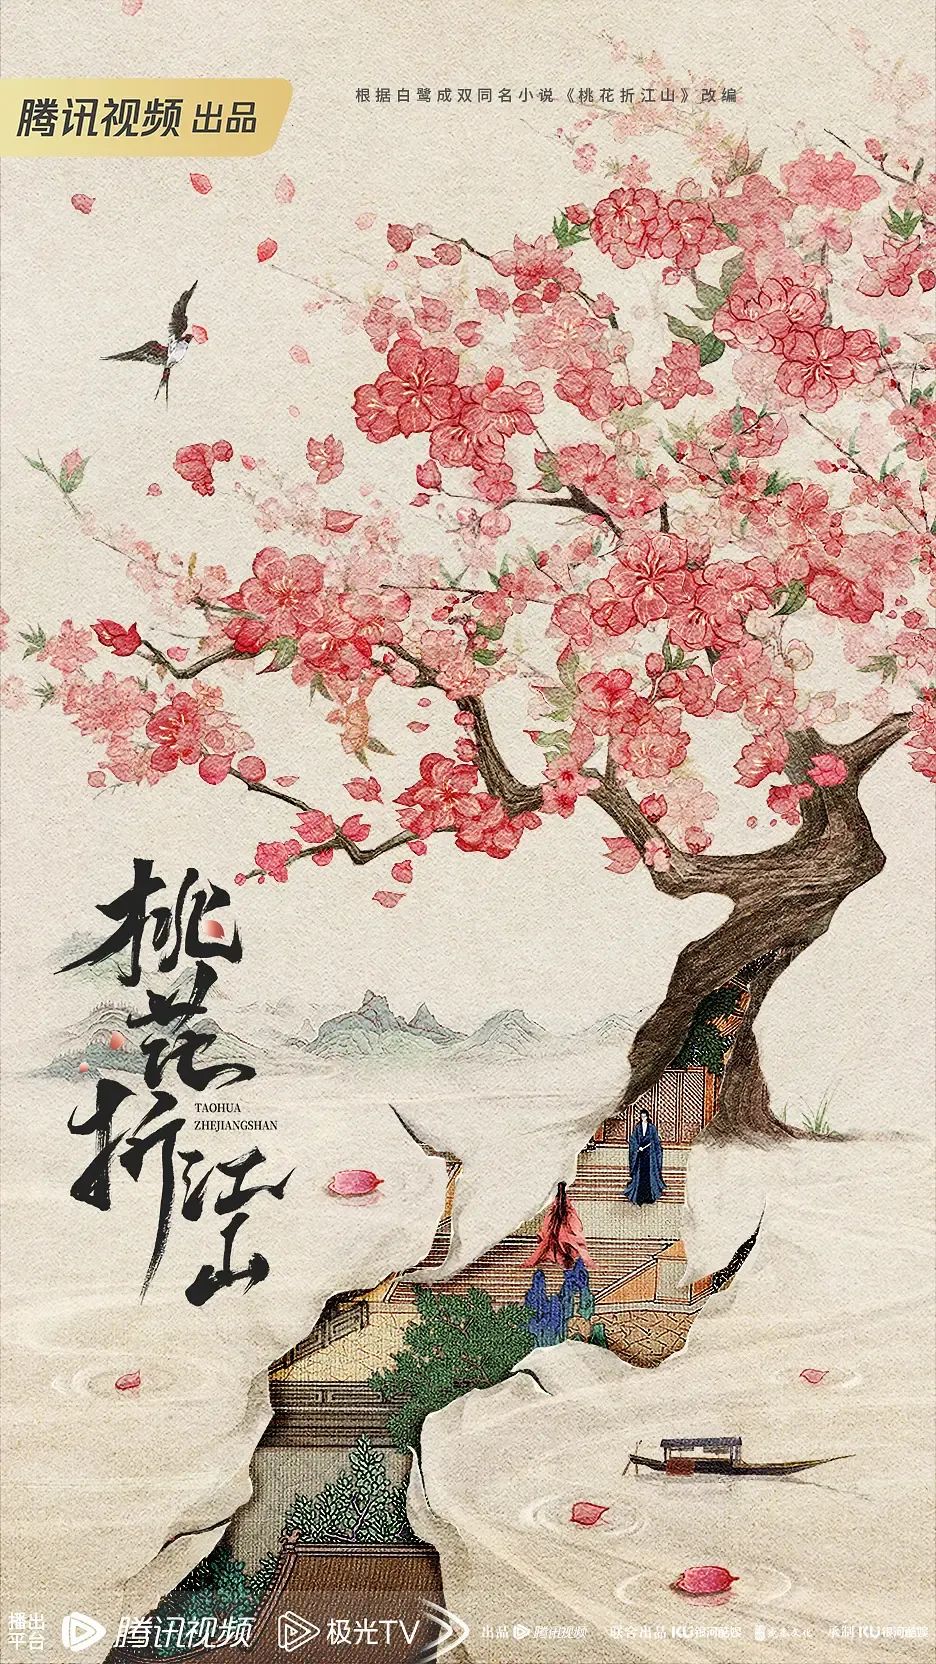 腾讯视频 出品
根据白鹭成双同名小说《桃花折江山》改编
桃花折江山
TAOHUA
ZHEJIANGSHAN
播出平台 腾讯视频 极光TV 出品 腾讯视频 联合出品 KU银河酷娱 承制 KU银河酷娱